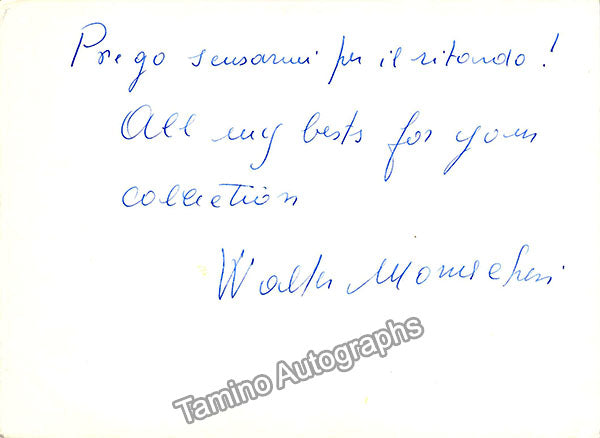 Prego scusarmi per il ritardo!
All my bests for your
collection
Walter Monachesi
Tamino Autographs